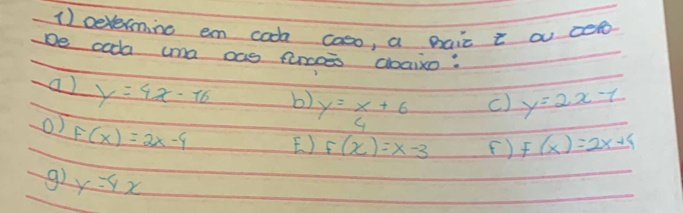 1) Determine em cada caso, a raiz e ou zero
De cada uma das funções abaixo:
a) y = 4x - 16 b) y = x + 6 c) y = 2x - 1
4
D) F(x) = 2x - 4 E) F(x) = x - 3 F) F(x) = 2x + 4
g) y = 4x